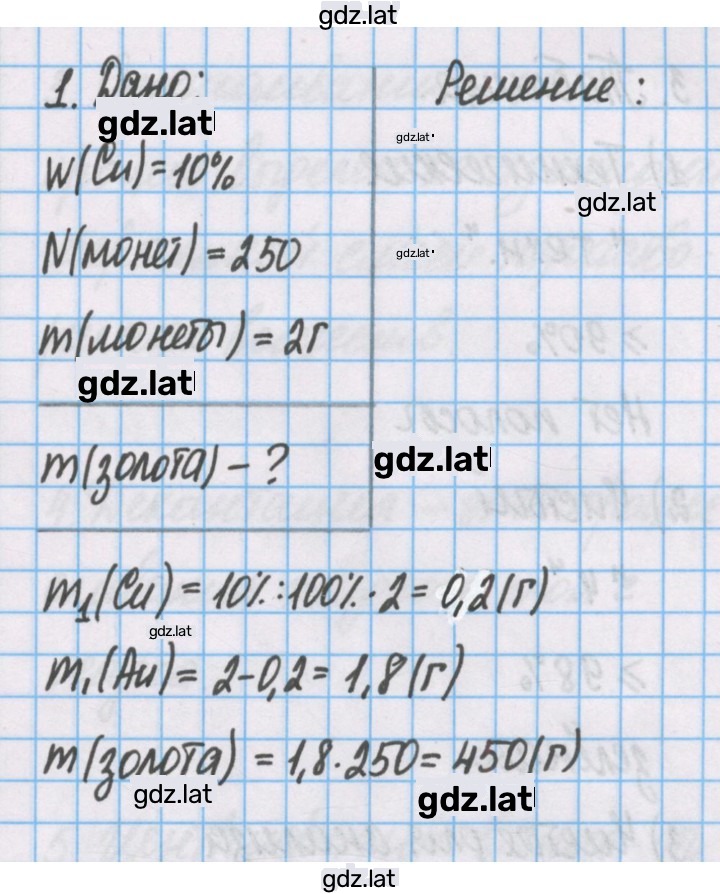 gdz.lat
1. Дано:
Решение:
gdz.lat
gdz.lat
W(Cu) = 10%
gdz.lat
N(монет) = 250
gdz.lat
m(монеты) = 2г
gdz.lat
m(золота) - ?
gdz.lat
m₁(Cu) = 10% : 100% · 2 = 0,2(г)
gdz.lat
m₁(Au) = 2-0,2 = 1,8(г)
m(золота) = 1,8 · 250 = 450(г)
gdz.lat
gdz.lat
gdz.lat